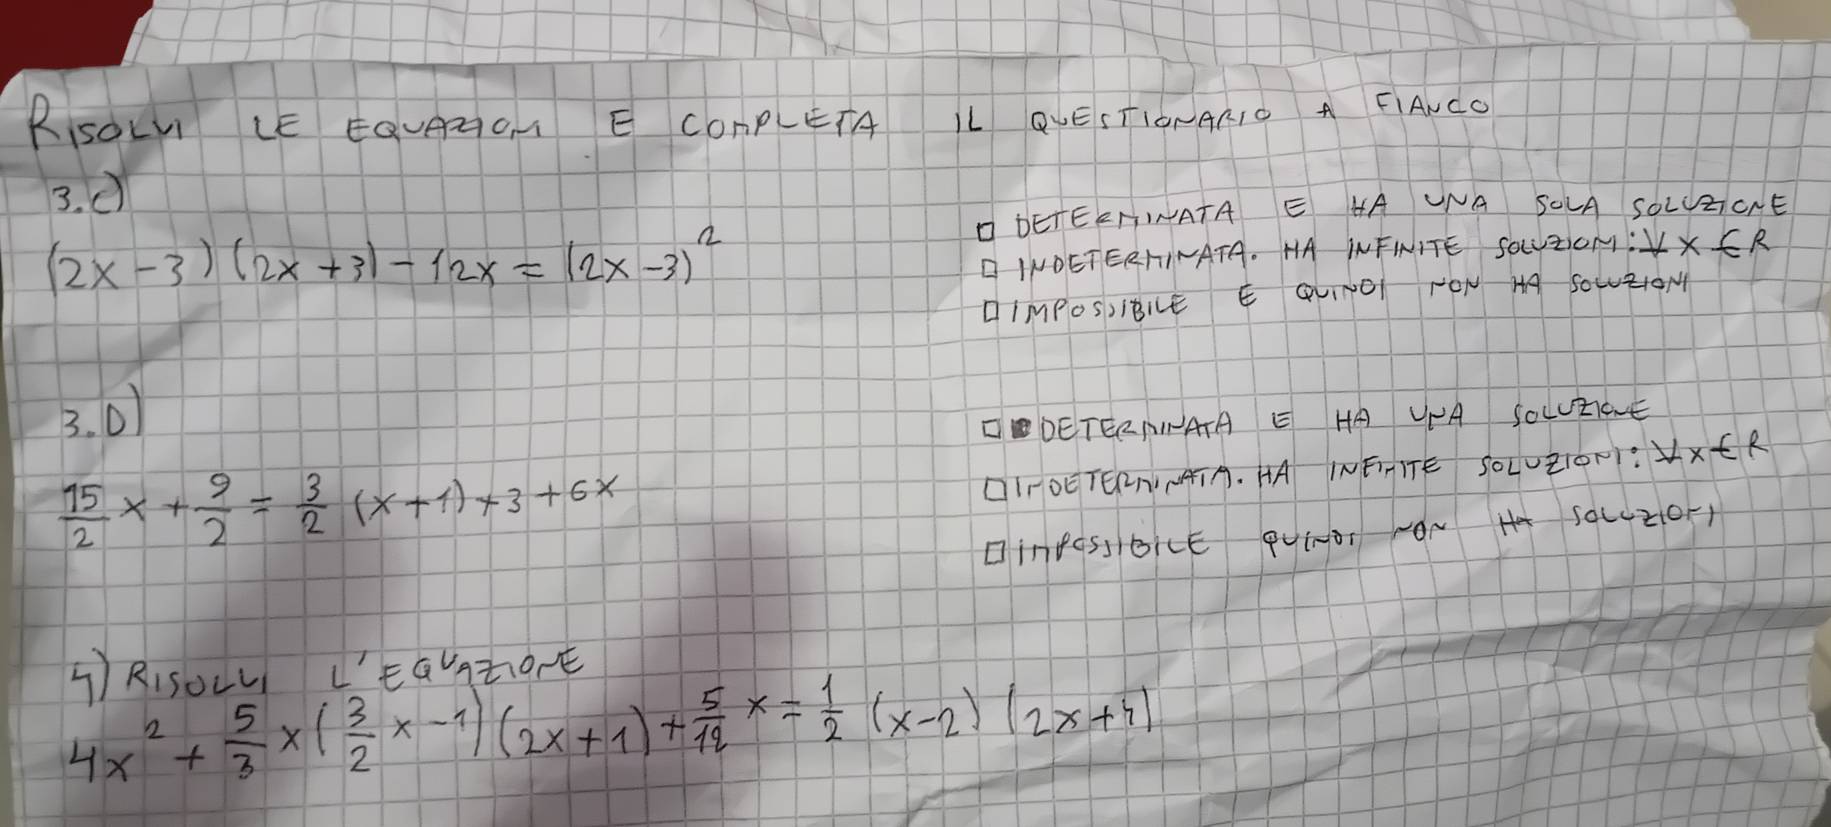 RISOLVI LE EQUAZIONI E COMPLETA IL QUESTIONARIO A FIANCO
3.C)
(2x-3)(2x+3)-12x=(2x-3)²
□ DETERMINATA E HA UNA SOLA SOLUZIONE
□ INDETERMINATA. HA INFINITE SOLUZIONI: ∀ x ∈ R
□ IMPOSSIBILE E QUINDI NON HA SOLUZIONI
3.D)
15/2 x + 9/2 = 3/2 (x+1)+3+6x
□ DETERMINATA E HA UNA SOLUZIONE
□ INDETERMINATA. HA INFINITE SOLUZIONI: ∀x∈R
□ IMPOSSIBILE QUINDI NON HA SOLUZIONI
4) RISOLVI L'EQUAZIONE
4x² + 5/3 x (3/2 x -1)(2x+1)+ 5/12 x = 1/2 (x-2)(2x+4)